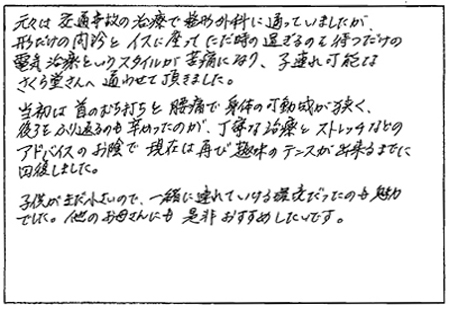 元々は 交通事故の治療で 整形外科に通っていましたが、
形だけの問診と イスに座って ただ時の過ぎるのを 待つだけの
電気治療というスタイルが 苦痛になり、子連れ可能な
さくら堂さんへ 通わせて頂きました。
当初は 首のむち打ちと 腰痛で 身体の可動域が狭く、
後ろをふり返るのも 辛かったのが、丁寧な治療と ストレッチなどの
アドバイスのお陰で 現在は再び 趣味のテニスが 出来るまでに
回復しました。
子供がまだ小さいので、一緒に連れていける環境だったのも 魅力
でした。他のお母さんにも 是非おすすめしたいです。